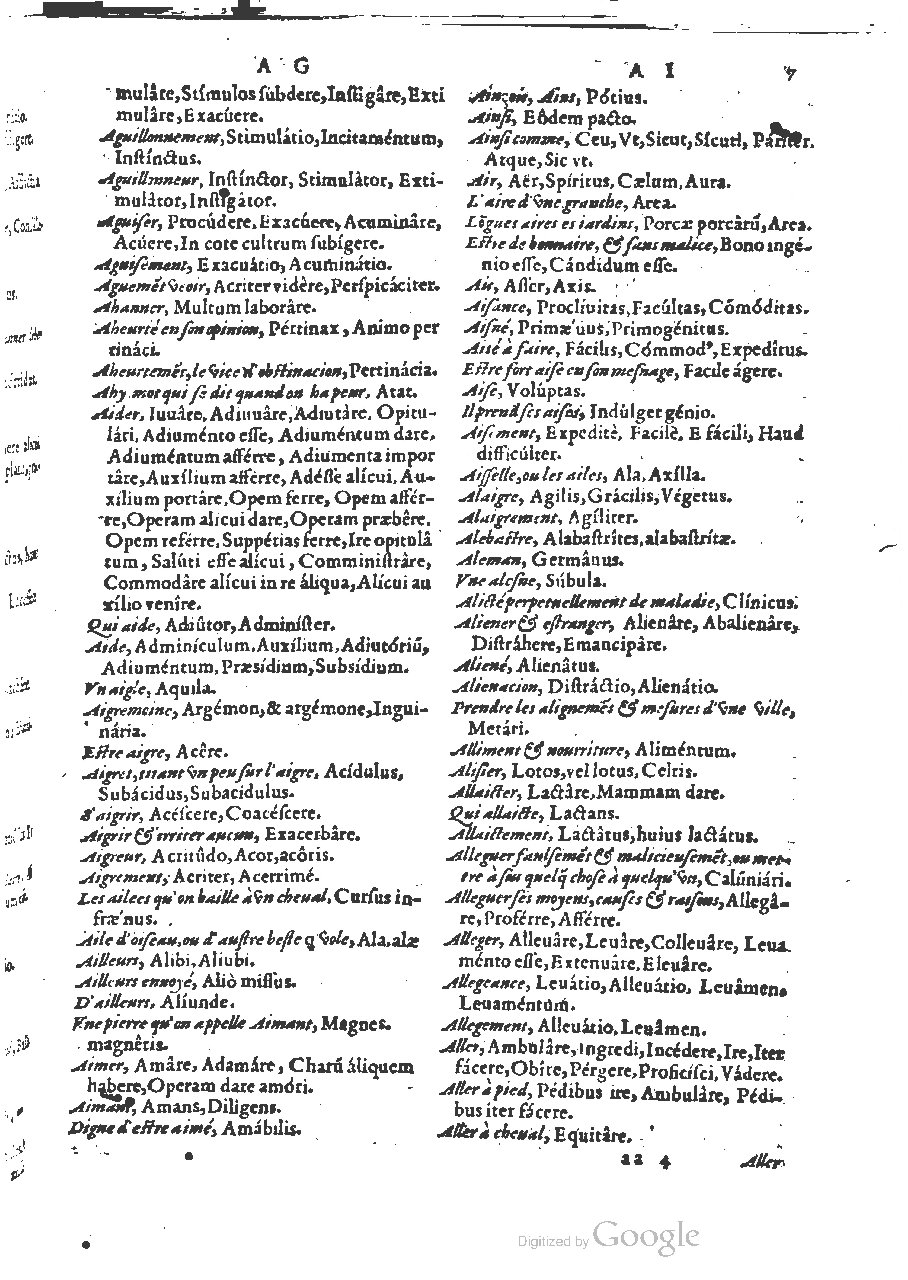 A G
mulâre,Stímulos ſubdere,Inſtigâre,Exti
muláre,Exacúere.
Aguillonnement,Stimulátio,Incitaméntum,
Inſtínctus.
Aguillonneur, Inſtínctor, Stimulâtor, Exti-
mulâtor,Inſtigâtor.
Aguiſer, Procúdere,Exacúere,Acuminâre,
Acúere,In cote cultrum ſubígere.
Aguiſement, Exacuátio,Acuminátio.
Aguemẽt veoir,Acriter vidêre,Perſpicáciter.
Ahanner, Multum laborâre.
Aheurté en ſon opinion, Péttinax, Animo per
tináci.
Aheurtemẽt,le vice d'obſtinacion,Pertinácia.
Ahy mot qui ſe dit quand on ha peur, Atat.
Aider, Iuuâre,Adiuuâre,Adiutâre, Opitu-
lári, Adiuménto eſſe, Adiuméntum dare,
Adiuméntum afférre, Adiumenta impor
târe,Auxílium afférre, Adéſſe alícui, Au-
xílium portâre,Opem ferre, Opem affér-
re,Operam alicui dare,Operam præbêre,
Opem reférre,Suppétias ferre,Ire opitulâ
tum, Salúti eſſe alícui, Comminiſtrâre,
Commodâre alícui in re áliqua,Alícui au
xílio venîre.
Qui aide, Adiûtor,Adminíſter.
Aide,Adminículum,Auxílium,Adiutóriũ,
Adiuméntum,Præsídium,Subsídium.
Vn aigle, Aquila.
Aigremoine, Argémon,& argémone,Ingui-
nária.
Eſtre aigre, Acêre.
Aigret,tirant vn peu ſur l'aigre, Acídulus,
Subácidus,Subacidulus.
S'aigrir, Acéſcere,Coacéſcere.
Aigrir & irriter aucun, Exacerbâre.
Aigreur, Acritûdo,Acor,acôris.
Aigrement, Acriter,Acerrimé.
Les ailees qu'on baille à vn cheual,Curſus in-
fræ'nus.
Aile d'oiſeau,ou d'auſtre beſte q̃ vole,Ala,alæ
Ailleurs, Alibi,Aliubi.
Ailleurs enuoyé, Aliò miſſus.
D'ailleurs, Alíunde.
Vne pierre qu'on appelle Aimant, Magnes,
magnêtis.
Aimer, Amâre, Adamáre, Charũ áliquem
habere,Operam dare amóri.
Aimant, Amans,Diligens.
Digne d'eſtre aimé, Amábilis.
A I 7
Ainçois, Ains, Pótius.
Ainſi, Eôdem pacto.
Ainſi comme, Ceu,Vt,Sicut,Sícuti, Páriter.
Atque,Sic vt.
Air, Aër,Spíritus, Cælum,Aura.
L'aire d'vne granche, Area.
Lõgues aires es iardins, Porcæ porcârũ,Area.
Eſtre de bonnaire, & ſans malice,Bono ingé-
nio eſſe,Cándidum eſſe.
Ais, Aſſer,Axis.
Aiſance, Proclíuitas,Facúltas,Cõmóditas.
Aiſné, Primæ'uus,Primogénitus.
Aiſé à faire, Fácilis,Cómmodꝰ,Expedîtus.
Eſtre fort aiſe en ſon meſnage, Facile ágere.
Aiſe, Volúptas.
Il prend ſes aiſes, Indúlget génio.
Aiſément, Expeditè, Facilè, E fácili, Haud
difficúlter.
Aiſſelle,ou les ailes, Ala,Axílla.
Alaigre, Agilis,Grácilis,Végetus.
Alaigrement, Agíliter.
Alebaſtre, Alabaſtrítes,alabaſtrítæ.
Aleman, Germânus.
Vne aleſne, Súbula.
Alicté perpetuellement de maladie,Clínicus.
Aliener & eſtranger, Alienâre, Abalienâre,
Diſtráhere,Emancipâre.
Aliené, Alienâtus.
Alienacion, Diſtráctio,Alienátio.
Prendre les alignemẽs & meſures d'vne ville,
Metári.
Alliment & nourriture, Aliméntum.
Aliſier, Lotos,vel lotus, Celtis.
Allaicter, Lactâre,Mammam dare.
Qui allaicte, Lactans.
Allaictement, Lactâtus,huius lactátus.
Alleguer faulſemẽt & malicieuſemẽt,ou met-
tre à ſus quelq̃ choſe à quelqu'vn,Calũniári.
Alleguer ſes moyens,cauſes & raiſons,Allegâ-
re,Proférre,Afférre.
Alleger, Alleuâre,Leuâre,Colleuâre, Leua
ménto eſſe,Extenuâre,Eleuâre.
Allegeance, Leuátio,Alleuátio, Leuâmen,
Leuaméntum.
Allegement, Alleuátio,Leuâmen.
Aller, Ambulâre,Ingredi,Incédere,Ire,Iter
fácere,Obíre,Pérgere,Proficíſci,Vádere.
Aller à pied, Pédibus ire, Ambulâre, Pédi-
bus iter fácere.
Aller à cheual, Equitâre.
aa 4 Aller
Digitized by Google